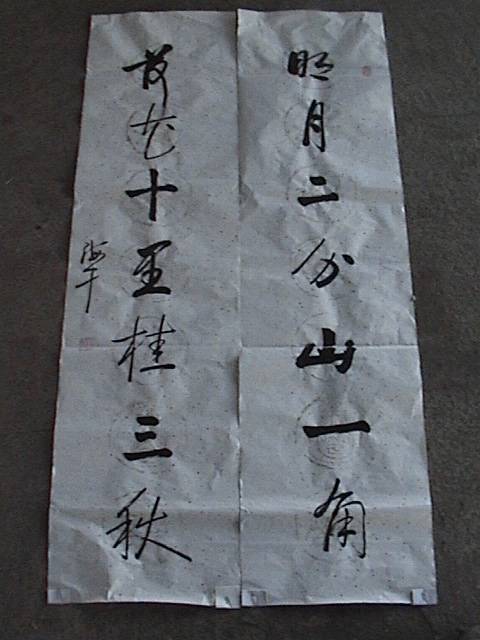 明月二分山一角
荷花十里桂三秋
海午